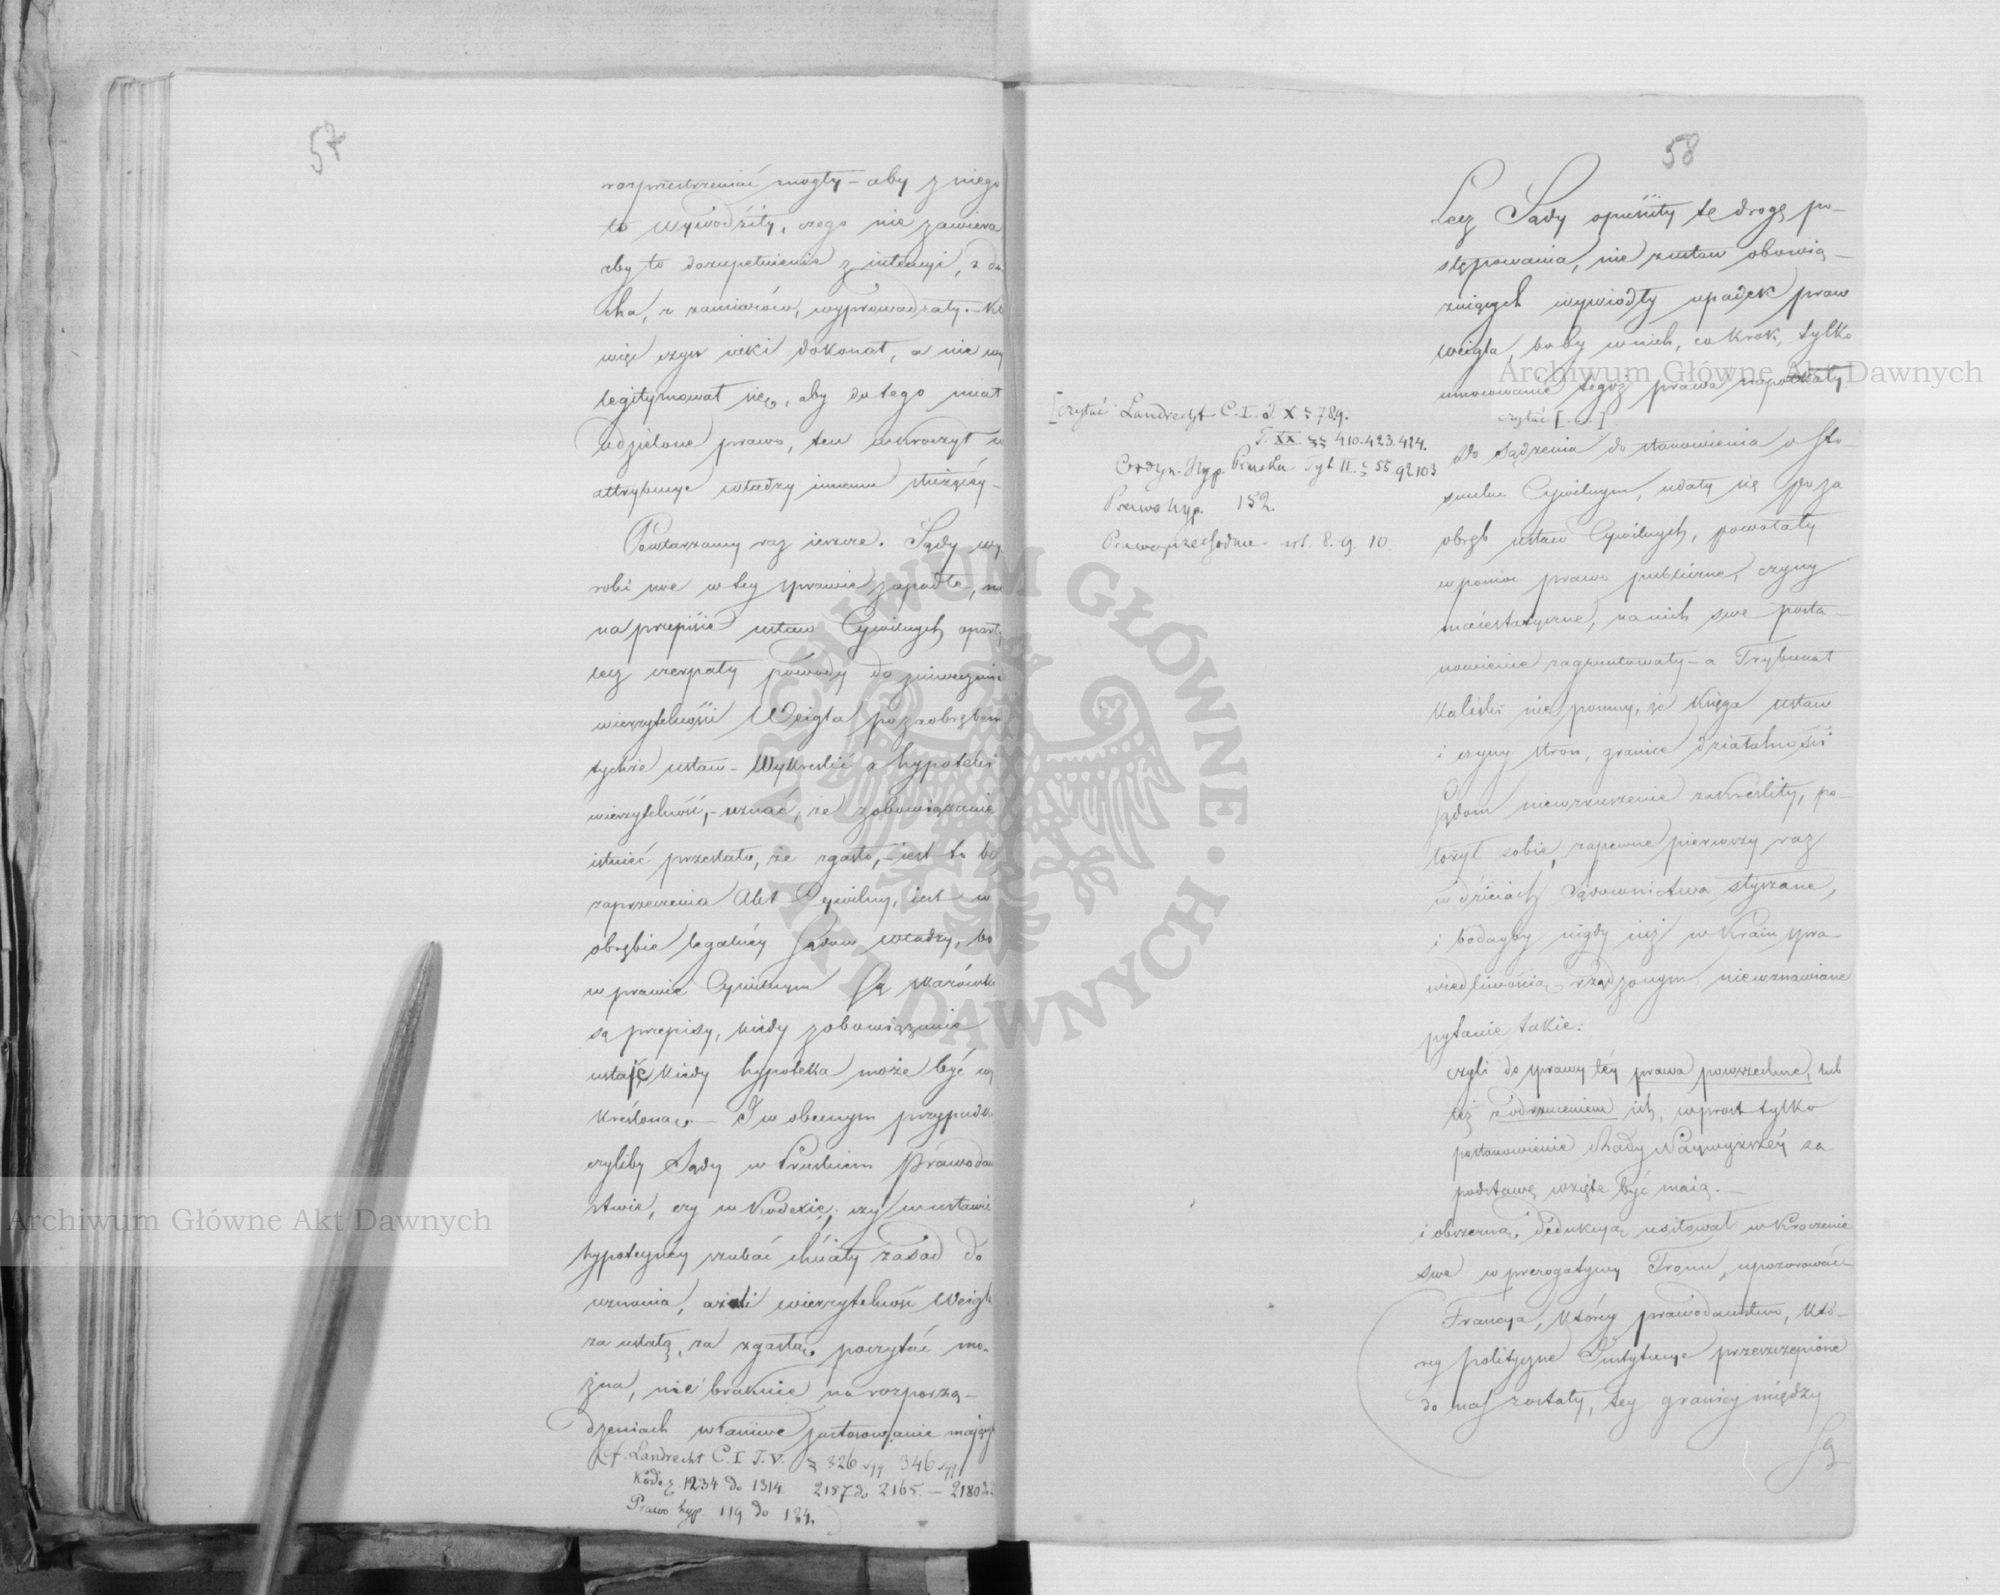 57
rozprzestrzeniać mogły – aby z niego
to wywodziły, czego nie zawiera
aby to dozupełnienie z intencyi, z du
cha, z zamiarów, wyprowadzały. – Kto
więc czyn jaki dokonał, a nie wy
legitymował się, aby do tego miał
udzielone prawo, ten wkroczył w
attrybucye władzy innemu służący –
Powtarzamy raz ieszcze. Sądy wy
roki swe w tey sprawie zapadłe, nie
na przepisie ustaw Cywilnych oparły
lecz czerpały powody do zniweczenia
wierzytelności Weigla poza obrębem
tychże ustaw – Wykreślić z hypoteki
wierzytelność, – uznać, że zobowiązanie
istnieć przestało, że zgasło, – iest to bez
zaprzeczenia Akt Cywilny, iest w
obrębie legalney Sądów władzy, bo
w prawie Cywilnym są skazówki
są przepisy, kiedy zobowiązanie
ustaje kiedy hypoteka może być wy
kreślona. – I w obecnym przypadku
czyliby Sądy w Pruskiem prawodaw
stwie, czy w Kodexie, czy w ustawie
hypoteczney szukać chciały zasad do
uznania, azali wierzytelność Weigla
za ustałą, za zgasłą poczytać mo-
żna, nie braknie na rozporzą-
dzeniach właściwe zastosowanie mających
(cf. Landrecht C. I T. V. § 326 sqq 346 sqq
Kodex 1234 do 1314. 2157 do 2165. – 2180 do
Prawo hyp. 119 do 124.)
58
Lecz Sądy opuściły tę drogę po-
stępowania, nie z ustaw obowią-
zuiących wywiodły upadek praw
Weigla, boby w nich, co krok, tylko
umocowanie tegoż prawa napotkały
czytać [. .]
[czytać: Landrecht C. I. T X § 789.
T. XX §§ 410. 423. 424.
Ordyn. Hyp. Pruska Tyt II. § 55 92 103
Prawo hyp. 152.
Prawo przechodnie art. 8. 9. 10.
do sądzenia do stanowienia o sto-
sunku Cywilnym, udały się poza
obręb ustaw Cywilnych, powołały
w pomoc prawo publiczne, czyny
maiestatyczne, na nich swe posta-
nowienie zagruntowały – a Trybunał
Kaliski niepomny, że Księga ustaw
i czyny stron, granice działalności
Sądom niewzruszenie zakreśliły, po-
łożył sobie, zapewne pierwszy raz
w dzieiach Sądownictwa słyszane,
i bodayby nigdy iuż w Kraiu spra-
wiedliwością rządzonym, niewznawiane
pytanie takie:
czyli do sprawy tey prawa powszechne, lub
też z odrzuceniem ich, wprost tylko
postanowienie Rady Naywyższey za
podstawę wzięte być maią. –
i obszerną dedukcyą usiłował wkroczenie
swe w prerogatywy Tronu, upozorować –
Francya, którey prawodawstwo, któ-
rey polityczne Instytucye przeszczepione
do nas zostały, tey granicy między
Są
Archiwum Główne Akt Dawnych
Archiwum Główne Akt Dawnych
ARCHIWUM GŁÓWNE · AKT DAWNYCH ·